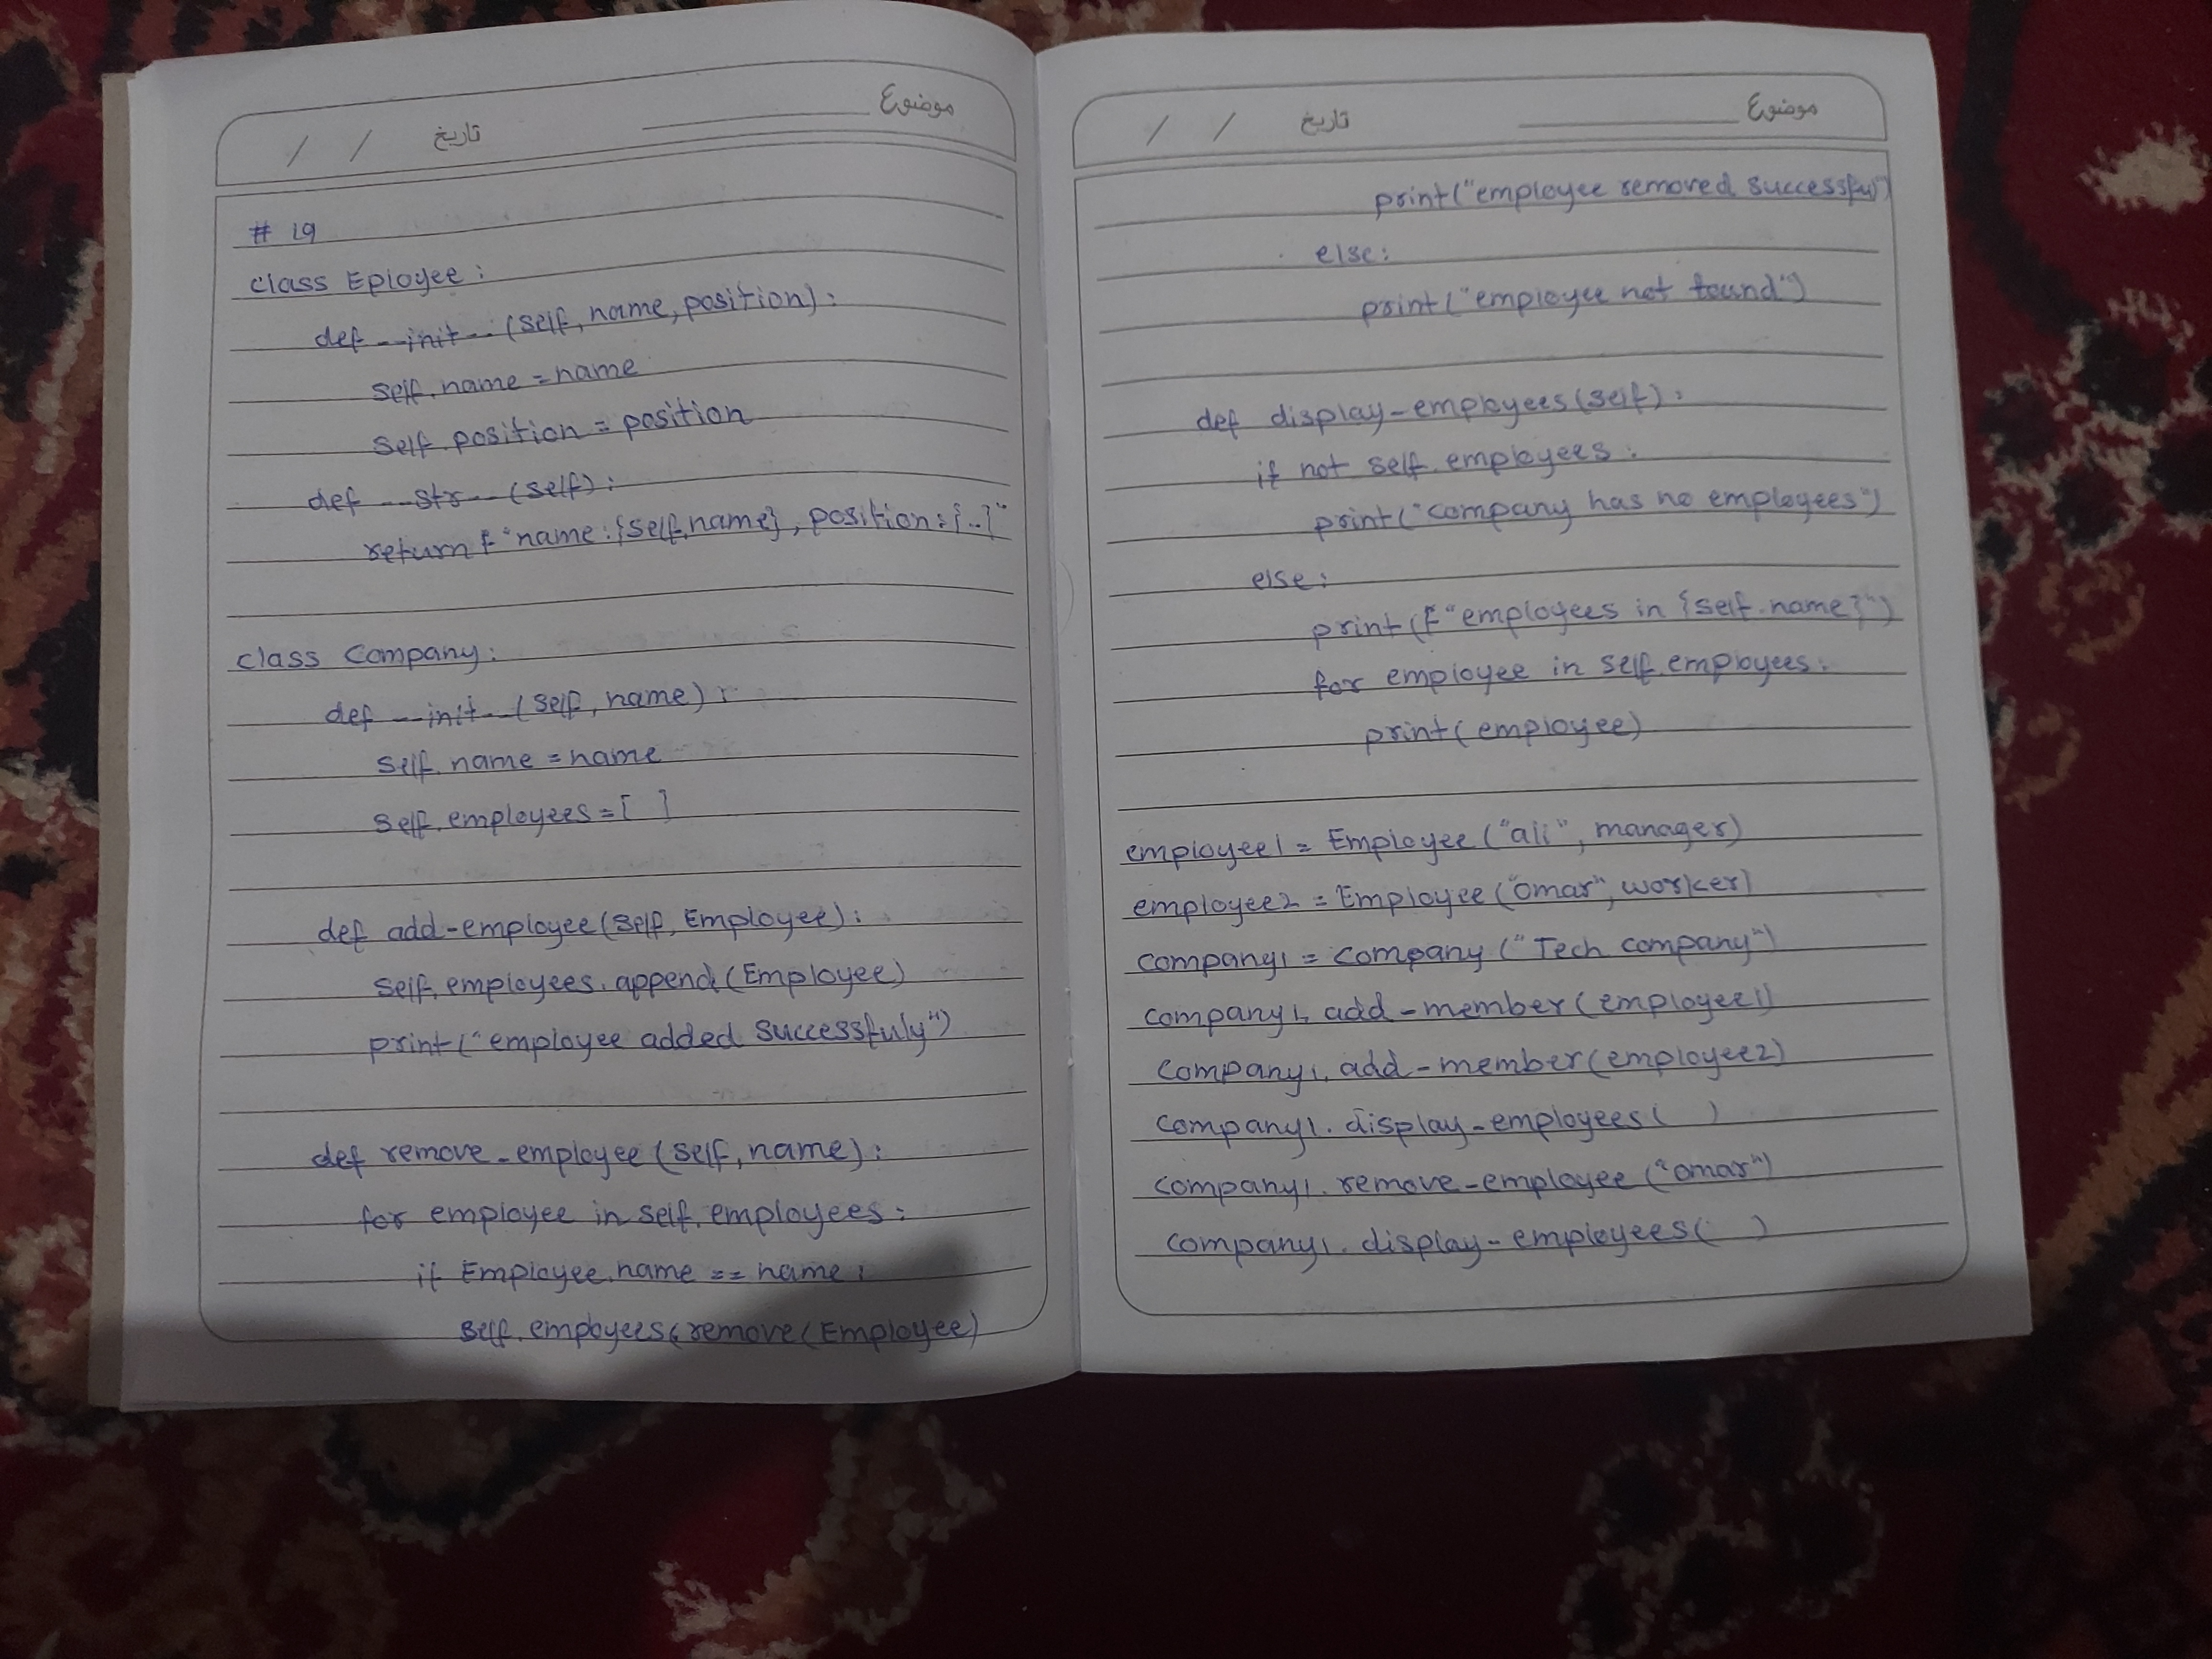 / / تاريخ موضوع
# 19
class Eployee :
def __init__(self, name, position):
self.name = name
self.position = position
def __str__(self):
return f"name:{self.name}, position:{..}"
class Company:
def __init__(self, name):
self.name = name
self.employees = [ ]
def add-employee(self, Employee):
self.employees.append(Employee)
print("employee added successfuly")
def remove-employee(self, name):
for employee in self.employees:
if Employee.name == name:
self.employees.remove(Employee)
/ / تاريخ موضوع
print("employee removed successful")
else:
print("employee not found")
def display-employees(self):
if not self.employees:
print("company has no employees")
else:
print(f"employees in {self.name}")
for employee in self.employees:
print(employee)
employee1 = Employee("ali", manager)
employee2 = Employee("Omar", worker)
company1 = company("Tech company")
company1.add-member(employee1)
company1.add-member(employee2)
company1.display-employees( )
company1.remove-employee("omar")
company1.display-employees( )